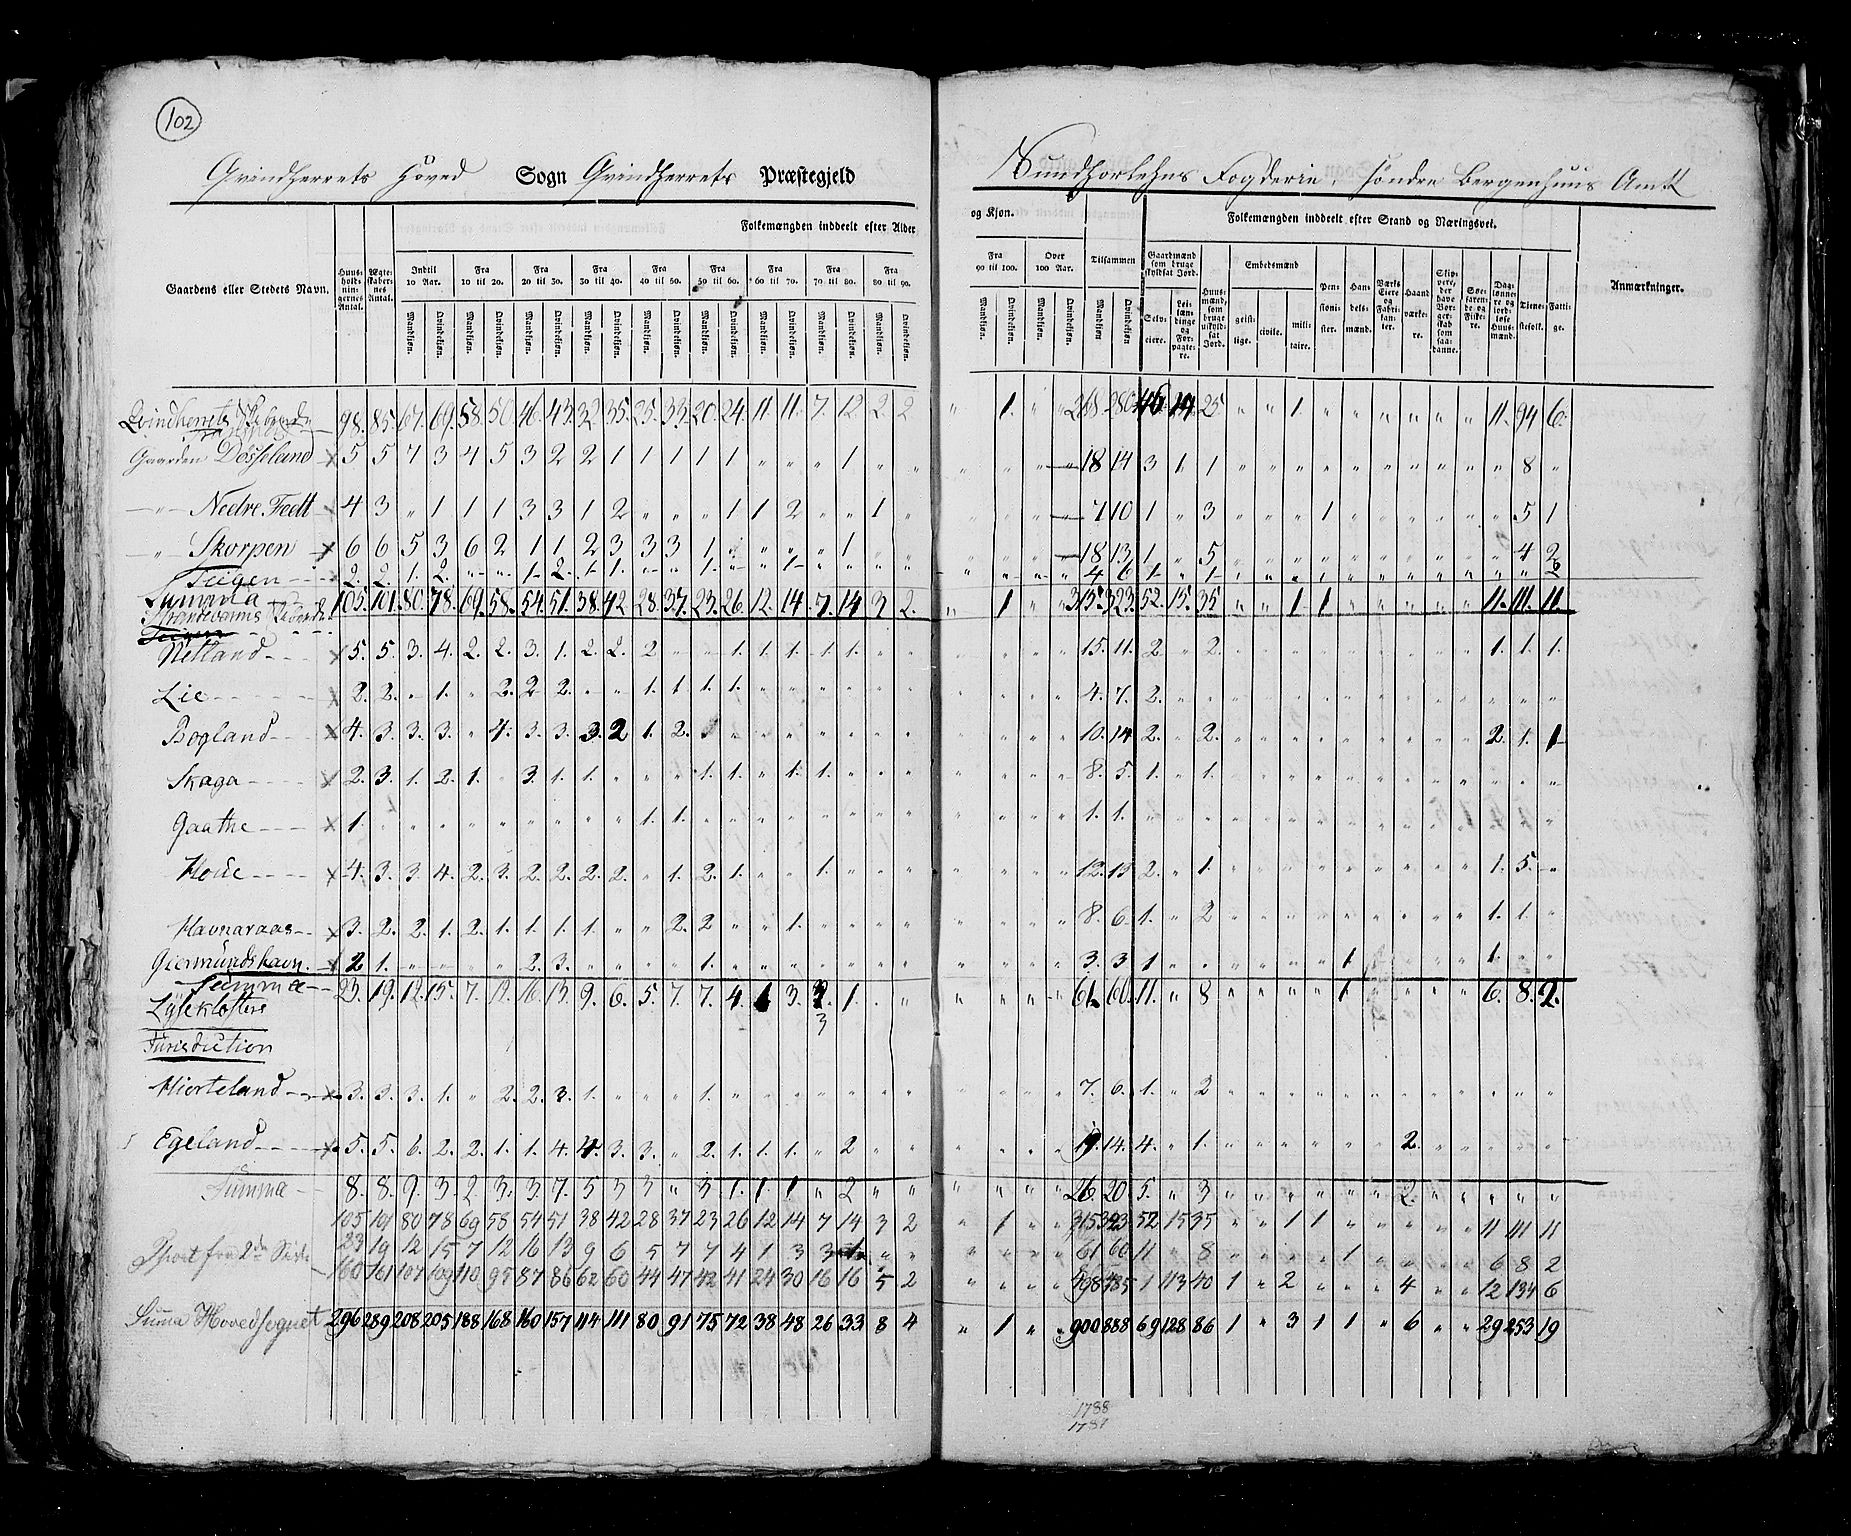 102
Qvindherrets Hoved Sogn Qvindherrets Præstegjeld
Sundhorlehns Fogderie, Søndre Bergenhuus Amt
Gaardens eller Stedets Navn.
Huusholdningernes Antal.
Ægteskabernes Antal.
Folkemængden inddeelt efter Alder og Kjøn.
Indtil 10 Aar. Fra 10 til 20. Fra 20 til 30. Fra 30 til 40. Fra 40 til 50. Fra 50 til 60. Fra 60 til 70. Fra 70 til 80. Fra 80 til 90. Fra 90 til 100. Over 100 Aar. Tilsammen
Mandkjøn. Qvindekjøn.
Folkemængden inddeelt efter Stand og Næringsvei.
Gaardmænd som bruge skyldsat Jord. Selveiere. Leilændinge og Forpagtere.
Huusmænd, som bruge uskyldsat Jord.
Embedsmænd geistlige. civile. militaire.
Pensionister. Handelsmænd. Værks Eiere og Fabrikanter. Haandværkere. Skippere, der have Borgerskab som saadanne. Søefarende og Fiskere. Daglønnere og jordløse Huusmænd. Tienestefolk. Fattige.
Anmærkninger.
Qvindherrets Skibrede 98. 85. 67. 69. 58. 50. 46. 43. 32. 35. 25. 33. 20. 24. 11. 11. 7. 12. 2. 2 " 1. " " 268 280 46 14 25. " " 1. " " " " " " 11. 94 6.
Gaarden Dösseland x 5 5 7 3 4 5 3 2 2 1 1 1 1 1 " " " 1 " " 18 14 3 1 1 " " " " " " " " " " 8 "
— " — Nedre Fedt x 4 3 " 1 1 1 3 3 1 2 " " " 1 1 2 " " 1 " 7 10 1 " 3 " " " 1 " " " " " " 5 1
— " — Skorpen x 6 6 5 3 6 2 1 1 2 3 3 3 1 " " " " 1 " " 18 13 1 " 5 " " " " " " " " " " 4 2
Teigen 2. 2. 1. 2. " " 1 2. 1 1. " " 1. " " 1 " " " " 4 6 1 " 1
Summa 105. 101. 80. 78. 69. 58. 54. 51. 38. 42 28. 37. 23. 26. 12. 14. 7. 14 3 2. " 1 " " 315. 323. 52. 15. 35 " " 1 1 " " " " " 11. 111. 11.
Netland x 5. 5. 3. 4. 2. 2. 3. 1. 2. 2. 2 " " 1. 1. 1. 1. 1. " " 15. 11. 2 " 2. " " " " " " " " " 1. 1. 1.
Lie x 2. 2. " 1. " 2. 2 2. " " 1. 1. 1. 1. " " " " " " 4. 7. 2.
Bogland x 4. 3. 3. 3. " 4. 3. 3. 3. 2 1. 2. " " " " " " " " 10. 14 2. " 2. " " " " " " " " " 2. 1. 1
Skaga x 2. 3. 1. 2. 1. " 3. 1. 1. " " " 1. 1. " 1. 1. " " " 8. 5. 1. " 1.
Gaathe x 1. " " " " " " " " " 1. 1. " " " " " " " " 1. 1.
Houe x 4. 3. 3. 4. 2. 3. 2. 2. 2. 2. " 1. 2. 1. " " 1. " " " 12. 13 2. " 1. " " " " " " " " " 1. 5. "
Havnaraas x 3. 2. 2. 1. 2. 1. 1. 1. 1. " " 2. 2 " " 1. " " " " 8. 6. 1. " 2 " " " " " " " " " 1. 1. "
Giermundshavn. x 2 1. " " " " 2. 3. " " " " 1. " " " " " " " 3. 3 1 " " " " " " 1 " " " " 1. " "
Summa 23. 19. 12. 15. 7. 12. 16. 13. 9. 6. 5. 7. 7. 4. 1 3. 3 1. " " 61. 60. 11. " 8 " " " " 1 " " " " 6. 8. 2.
Lÿseklosters
Jurisdiction
Hierteland x 3. 3. 3. 1. " 2. 2. 3. 1. " " " 1. " " " " " " " 7. 6. 1. " 2
Egeland x 5. 5. 6. 2. 2. 1. 1. 4. 4. 3. 3. " 2. 1. 1. 1. " 2 " " 19. 14. 4. " 1. " " " " " " 2.
Summa 8. 8. 9. 3. 2. 3. 3. 7. 5 3 3 " 3 1. 1. 1 " 2 " " 26. 20 5. " 3 " " " " " " 2.
105 101 80 78 69 58 54 51 38 42 28 37 23 26 12 14 7 14 3 2 " 1 " " 315 323 52 15 35 " " 1 1 " " " " " 11 111 11
23 19 12 15 7 12 16 13 9 6 5 7 7 4 1 3 3 1 " " 61 60 11 " 8 " " " " 1 " " " " 6 8 2
fra 2de Side 160 161 107 109 110 95 87 86 62 60 44 47 42 41 24 30 16 16 5 2 498 485 1 113 40 1 " 2 " " " 4 " " 12 134 6
Summa Hovedsognet 296 289 208 205 188 168 160 157 114 111 80 91 75 72 38 48 26 33 8 4 " 1 " " 900 888 69 128 86 1 " 3 1 1 " 6 " " 29 253 19
1788
1787